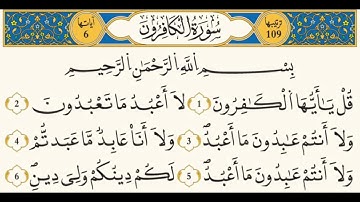 ترتيبها 109 سُورَةُ الْكَافِرُونَ آياتها 6
بِسْمِ اللَّهِ الرَّحْمَٰنِ الرَّحِيمِ
قُلْ يَا أَيُّهَا الْكَافِرُونَ 1 لَا أَعْبُدُ مَا تَعْبُدُونَ 2
وَلَا أَنتُمْ عَابِدُونَ مَا أَعْبُدُ 3 وَلَا أَنَا عَابِدٌ مَّا عَبَدتُّمْ 4
وَلَا أَنتُمْ عَابِدُونَ مَا أَعْبُدُ 5 لَكُمْ دِينُكُمْ وَلِيَ دِينِ 6